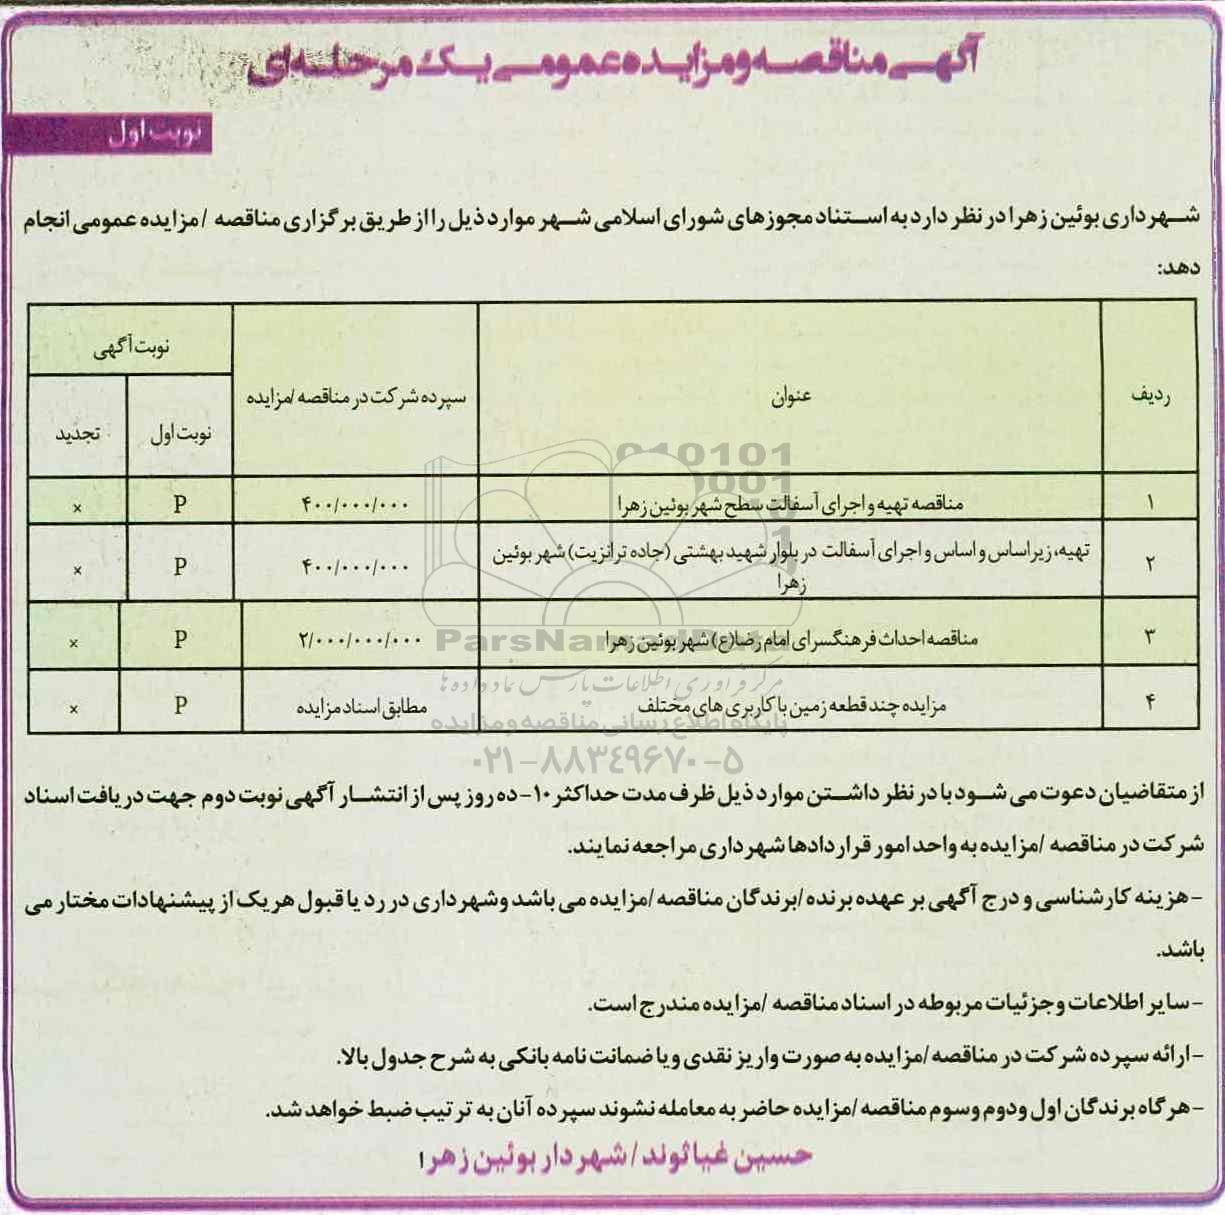 آگهی مناقصه و مزایده عمومی یک مرحله‌ای
نوبت اول
شهرداری بوئین زهرا در نظر دارد به استناد مجوزهای شورای اسلامی شهر موارد ذیل را از طریق برگزاری مناقصه / مزایده عمومی انجام
دهد:
ردیف	عنوان	سپرده شرکت در مناقصه /مزایده	نوبت آگهی
نوبت اول	تجدید
۱	مناقصه تهیه و اجرای آسفالت سطح شهر بوئین زهرا	۴۰۰/۰۰۰/۰۰۰	P	×
۲	تهیه، زیراساس و اساس و اجرای آسفالت در بلوار شهید بهشتی (جاده ترانزیت) شهر بوئین
زهرا	۴۰۰/۰۰۰/۰۰۰	P	×
۳	مناقصه احداث فرهنگسرای امام رضا(ع) شهر بوئین زهرا	۲/۰۰۰/۰۰۰/۰۰۰	P	×
۴	مزایده چند قطعه زمین با کاربری های مختلف	مطابق اسناد مزایده	P	×
010101
0001
ParsNamadData
مرکز فرآوری اطلاعات پارس نماد داده ها
پایگاه اطلاع رسانی مناقصه و مزایده
۰۲۱-۸۸۳۴۹۶۷۰-۵
از متقاضیان دعوت می شود با در نظر داشتن موارد ذیل ظرف مدت حداکثر ۱۰- ده روز پس از انتشار آگهی نوبت دوم جهت دریافت اسناد
شرکت در مناقصه /مزایده به واحد امور قراردادها شهرداری مراجعه نمایند.
-هزینه کارشناسی و درج آگهی بر عهده برنده /برندگان مناقصه /مزایده می باشد وشهرداری در رد یا قبول هریک از پیشنهادات مختار می
باشد.
-سایر اطلاعات وجزئیات مربوطه در اسناد مناقصه /مزایده مندرج است.
-ارائه سپرده شرکت در مناقصه /مزایده به صورت واریز نقدی ویا ضمانت نامه بانکی به شرح جدول بالا.
-هرگاه برندگان اول ودوم وسوم مناقصه /مزایده حاضر به معامله نشوند سپرده آنان به ترتیب ضبط خواهد شد.
حسین غیاثوند / شهردار بوئین زهرا